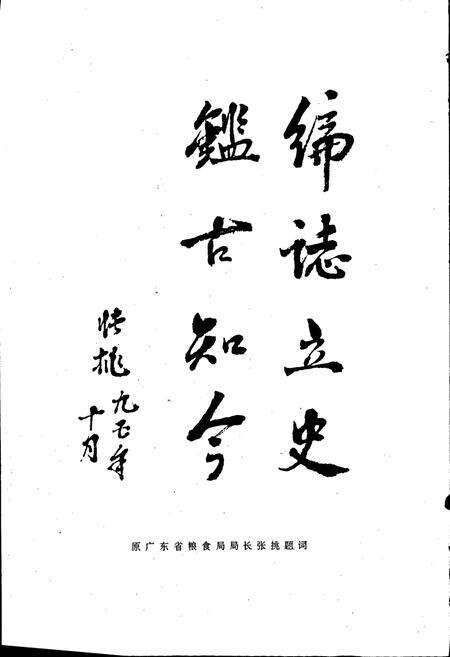 编誌立史
鑑古知今
张挑
九五年
十月
原广东省粮食局局长张挑题词